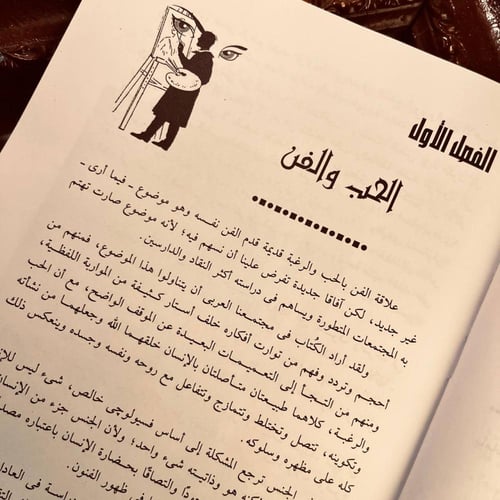 الفصل الأول
الحب والفن
علاقة الفن بالحب والرغبة قديمة قدم الفن نفسه وهو موضوع - فيما أرى -
غير جديد، لكن آفاقا جديدة تفرض علينا أن نسهم فيه؛ لأنه موضوع صارت تهتم
به المجتمعات المتطورة ويساهم فى دراسته أكثر النقاد والدارسين.
ولقد أراد الكُتاب فى مجتمعنا العربى أن يتناولوا هذا الموضوع، فمنهم من
أحجم وتردد وفهم من توارت أفكاره خلف أستار كثيفة من المواربة اللفظية،
ومنهم من التجأ إلى التعميمات البعيدة عن الموقف الواضح، مع أن الحب
والرغبة، كلاهما طبيعتان متأصلتان بالإنسان خلقهما الله وجعلهما من نشأته
وتكوينه، تتصل وتختلط وتتمازج وتتفاعل مع روحه ونفسه وجسده وينعكس ذلك
كله على مظهره وسلوكه.
الجنس ترجع المشكلة إلى أساس فسيولوجى خالص، شىء ليس
هو وذاتيته شىء واحد؛ ولأن الجنس جزء من
والتصاقا بحضارة الإنسان باعتباره
فى ظهور الفنون.